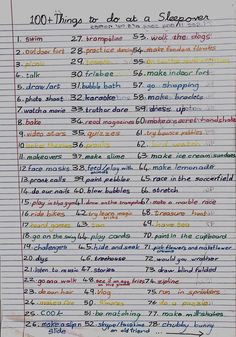 100+ Things to do at a Sleepover
1. swim 27. trampoline 53. walk the dogs
2. outdoor fort 28. practice
3. picnic 29.
4. talk 30. frisbee 56. make indoor fort
5. draw/art 31. bubble bath 57. go shopping
6. photo shoot 32. karaoke 58. make bracelets
7. watch a movie 33. truth or dare 59. dress up
8. bake 34. read magazines 60. make a secret handshake
9. video stars 35. quizzes 61. try bounce
10. 36.
11. makeovers 37. make slime 63. make ice cream sundaes
12. face masks 38. feed/play with animals 64. make lemonade
13. prank calls 39. paint pebbles 65. race in the
14. do our nails 40. blow bubbles 66. stretch
15. play in the gym 41. draw on the trampoline 67. make a marble race
16. ride bikes 42. try learn magic tricks 68. treasure hunt
17. board games 43. sun 69. have tea
18. go on the swing 44. play cards 70. paint in the cupboard
19. challenges 45. hide and seek 71. pick flowers and make flower crowns
20. diys 46. treehouse 72. would you rather
21. listen to music 47. stories 73. draw blind folded
22. go on a walk 48. 74. zipline
23. do our hair 49. vlog 75. run in sprinklers
24. make a fire 50. s'mores 76. do a puzzle
25. cook 51. be matching 77. make milkshakes
26. make a slip n slide 52. skype/facetime an old friend 78. chubby bunny